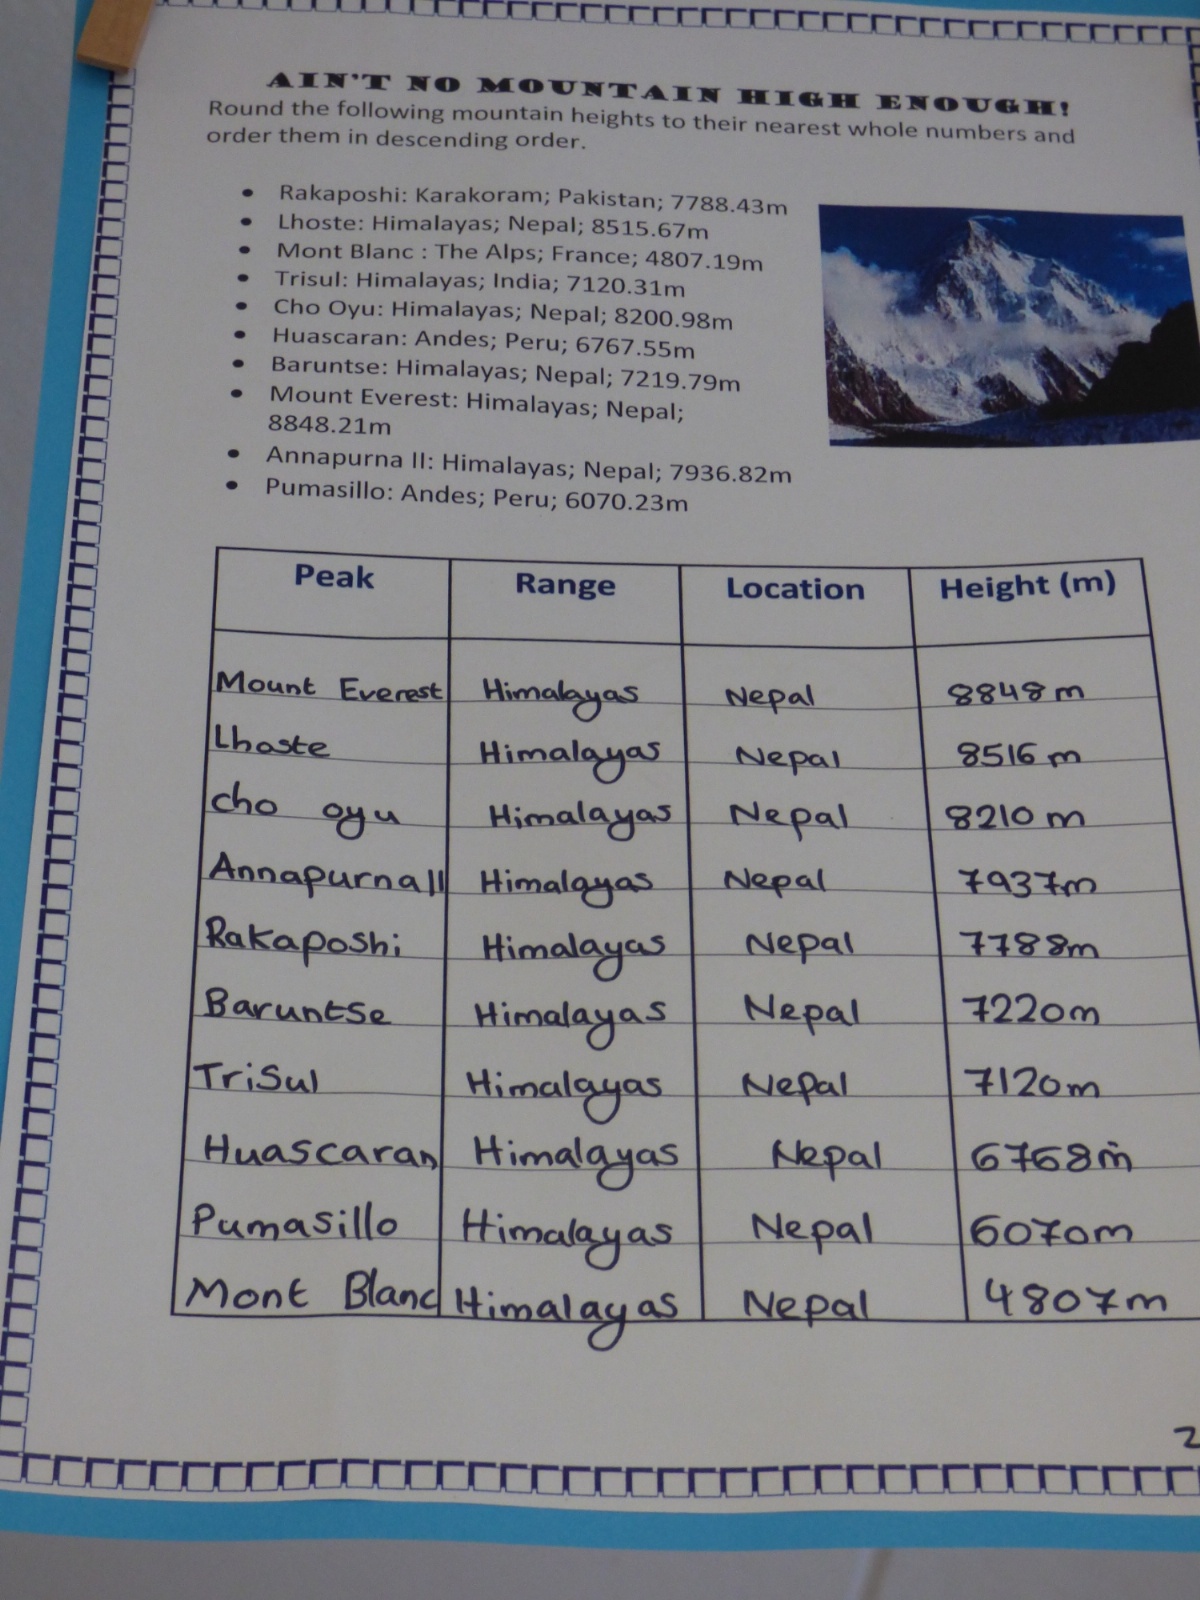 AIN'T NO MOUNTAIN HIGH ENOUGH!
Round the following mountain heights to their nearest whole numbers and
order them in descending order.
• Rakaposhi: Karakoram; Pakistan; 7788.43m
• Lhoste: Himalayas; Nepal; 8515.67m
• Mont Blanc : The Alps; France; 4807.19m
• Trisul: Himalayas; India; 7120.31m
• Cho Oyu: Himalayas; Nepal; 8200.98m
• Huascaran: Andes; Peru; 6767.55m
• Baruntse: Himalayas; Nepal; 7219.79m
• Mount Everest: Himalayas; Nepal;
8848.21m
• Annapurna II: Himalayas; Nepal; 7936.82m
• Pumasillo: Andes; Peru; 6070.23m
Peak Range Location Height (m)
Mount Everest Himalayas Nepal 8848 m
Lhoste Himalayas Nepal 8516 m
cho oyu Himalayas Nepal 8210 m
Annapurna II Himalayas Nepal 7937m
Rakaposhi Himalayas Nepal 7788m
Baruntse Himalayas Nepal 7220m
Trisul Himalayas Nepal 7120m
Huascaran Himalayas Nepal 6768m
Pumasillo Himalayas Nepal 6070m
Mont Blanc Himalayas Nepal 4807m